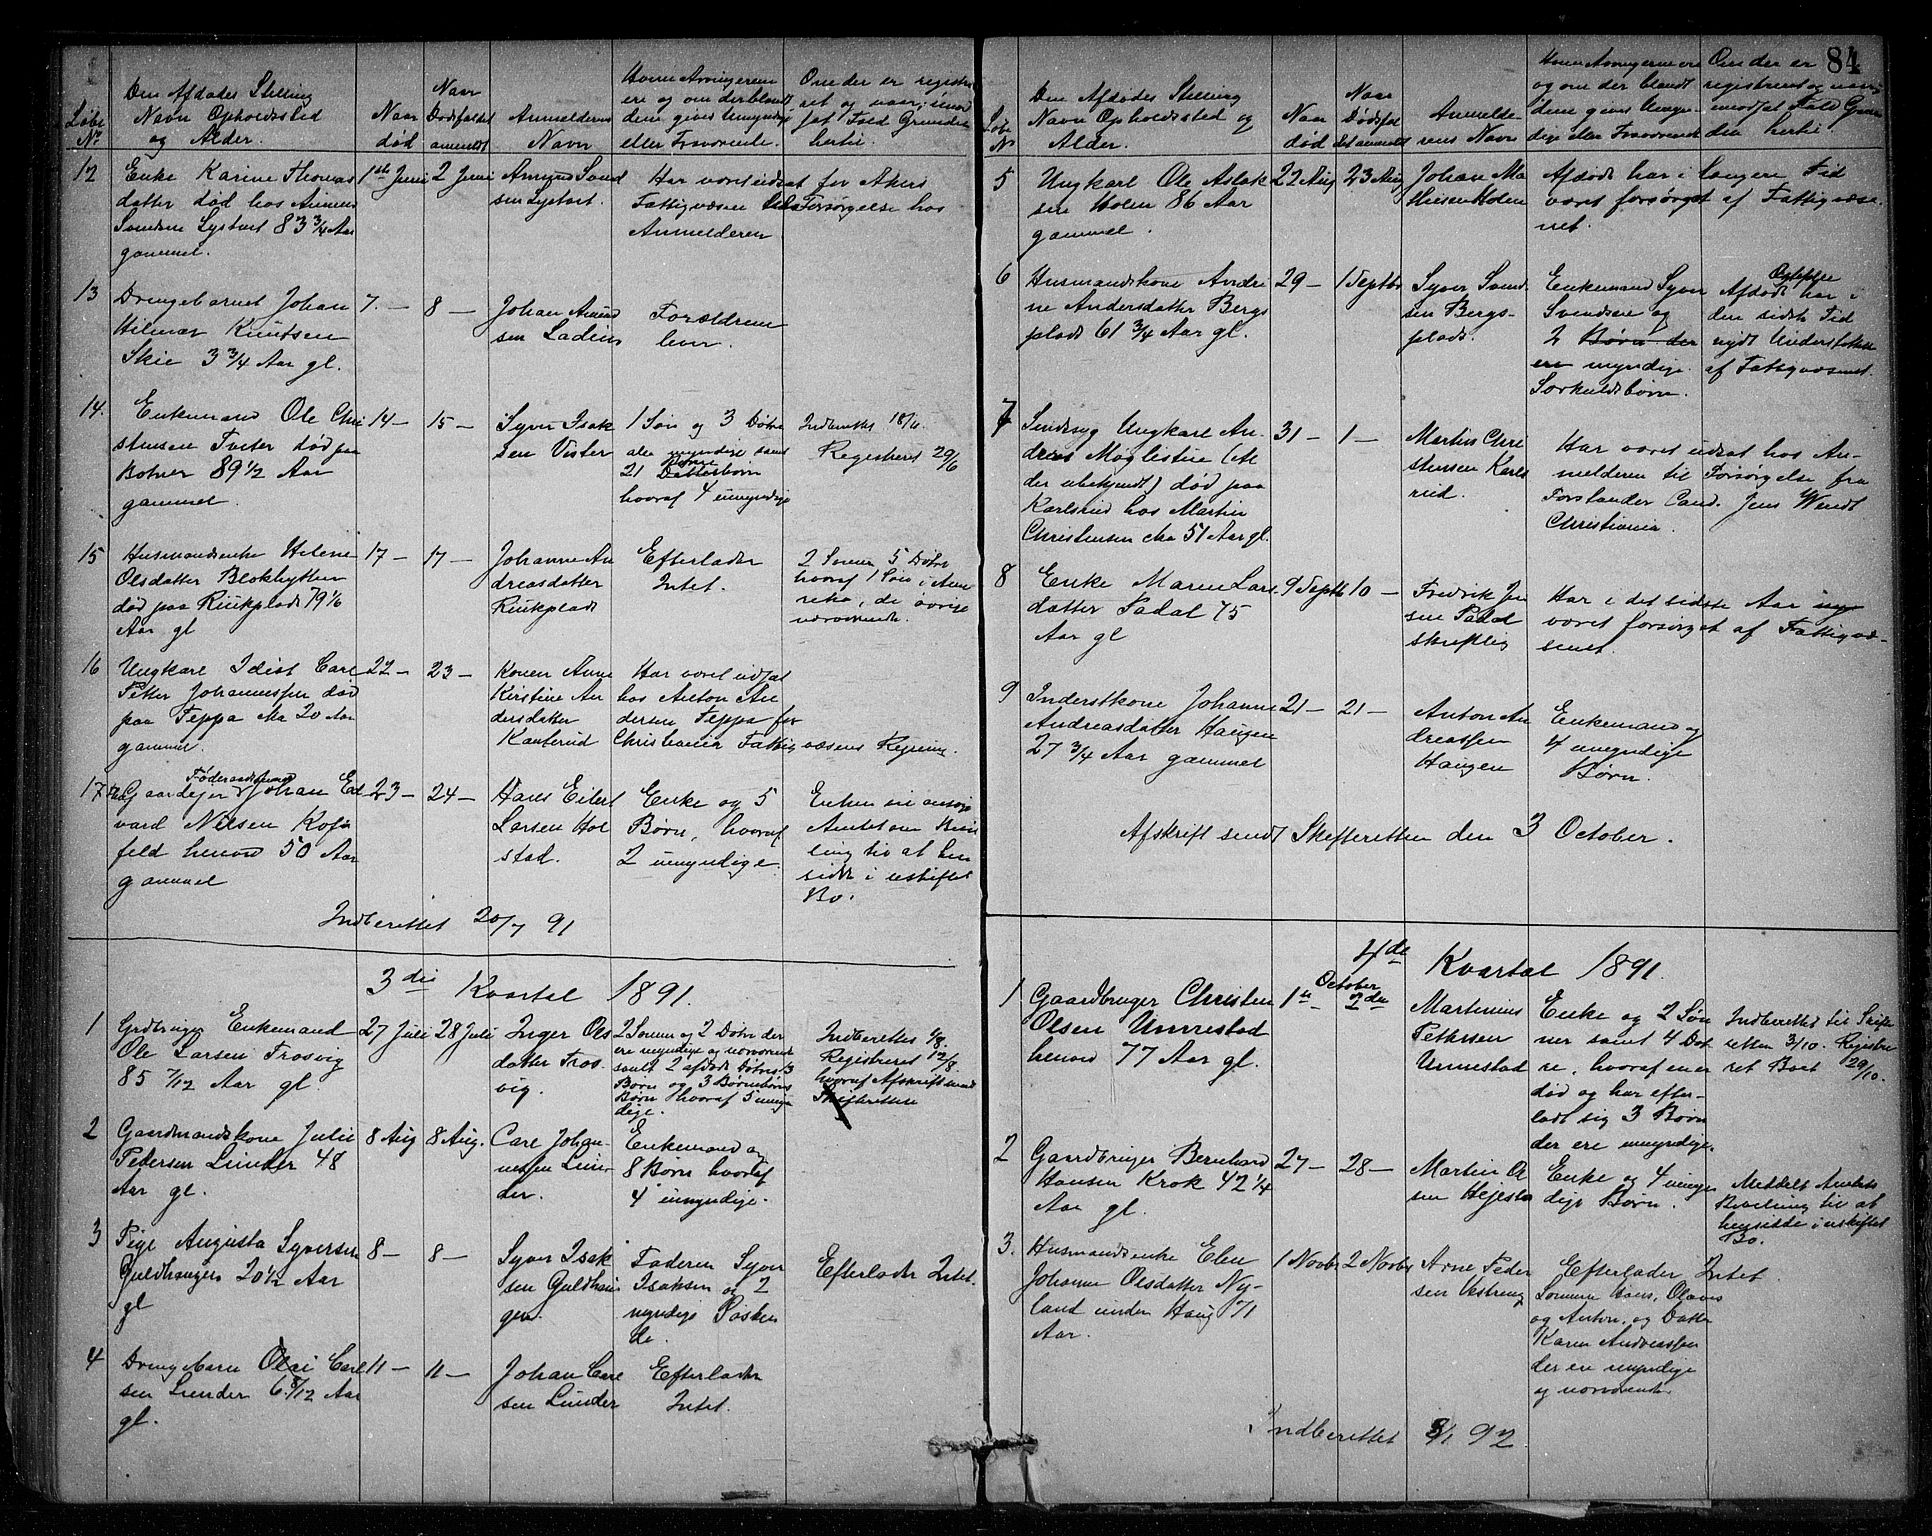 84
Løbe No
Den Afdødes Stilling
Navn Opholdssted
og Alder.
Naar
død
Naar
Dødsfaldet
anmeldt
Anmelderens
Navn
Hvem Arvingerne
ere og om der blandt
dem gives Umyndige
eller Fraværende.
Om der er registre
ret og naar; imod
sat Fald Grunden
hertil
12 Enke Karine Thomas 1ste Juni 2 Juni
datter død hos
Svendsen Systvet 83 3/4 Aar
gammel.
Svend
sen Systvet.
Har været udsat for Akers
Fattigvæsen Forsørgelse hos
Anmelderen
13 Drengebarnet Johan 7. — 8 —
Hilmar Knudsen
Skie 3 3/4 Aar gl.
Johan
sen
Forældrene
lever.
14. Enkemand Ole Chri 14 — 15 —
stensen Tveter død paa
Botner 89 1/2 Aar
gammel.
Syver Isak
sen Vister
1 Søn og 3 Døtre
alle myndige samt
21 Børnebørn
hvoraf 4 umyndige
Indberettet 18/6.
Registreret 29/6
15 Husmandsenke Helene 17 — 17 —
Olsdatter Blokhytten
død paa Riukplads 79 1/6
Aar gl
Johanne An
dreasdatter
Riukplads
Efterlader
Intet.
2 Sønner 5 Døtre
hvoraf 1 Søn i Ame
rika, de øvrige
nærværende.
16 Ungkarl Idiot Carl 22 — 23 —
Petter Johannessen død
paa Teppa 20 Aar
gammel.
Konen Anne
Kirstine An
dersdatter
Kanterud
Har været udsat
hos Anton An
dersen Teppa for
Christiania Fattigvæsens Regning.
17 Føderaadsmand
Gaardejer Johan Ed 23 — 24 —
vard Nielsen
feld henved 50 Aar
gammel
Hans Eilert
Larsen Hol
stad.
Enke og 5
Børn, hvoraf
2 umyndige
Enken vil ansøge
Amtet om Bevil
ling til at hen
sidde i uskiftet
Bo.
Indberettet 20/7 91
3die Kvartal 1891.
1 Grdbruger Enkemand 27 Juli 28 Juli
Ole Larsen Trosvig
85 7/12 Aar gl.
Inger Ols
datter Tros
vig.
2 Sønner og 2 Døtre der
ere myndige og nærværende
samt 2 afdøde Døtres 3
Børn og 3 Børnebørns
Børn hvoraf 5 umyn
dige.
Indberettet
Registreret 12/8
hvoraf Afskrift sendt
Skifteretten
2 Gaardmandskone Julie 8 Aug 8 Aug.
Pedersen Lunder 48
Aar gl.
Carl Johan
nessen Lun
der.
Enkemand og
8 Børn hvoraf
4 umyndige.
3 Pige Augusta Syversen 8 — 8 —
Guldhaugen 20 1/2 Aar
gl
Syver Isak
sen Guldhau
gen.
Faderen Syver
Isaksen og 2
myndige Søsken
de.
Efterlader Intet.
4 Drengebarn Carl 11 — 11 —
sen Lunder 6 8/12 Aar
gl.
Johan Carl
sen Lunder
Efterlader
Intet.
Løbe No
Den Afdødes Stilling
Navn Opholdssted og
Alder.
Naar
død
Naar
Dødsfal
det anmeldt
Anmelde
rens Navn
Hvem Arvingerne ere
og om der blandt
dem gives Umyn
dige eller Fraværende
Om der er
registreret og naar;
imodsat Fald Grun
den hertil
5 Ungkarl Ole Aslak 22 Aug 23 Aug
sen Holen 86 Aar
gammel.
Johan Ma
thiesen Holen
Afdøde har i længere Tid
været forsørget af Fattigvæse
net.
6 Husmandskone Andri 29 — 1 Septbr
ne Andersdatter Bergs
plads 61 3/4 Aar gl.
Syver Svend
sen Bergs-
plads.
Enkemand Syver
Svendsen og
2 Børn der
ere myndige.
Særkuldsbørn.
Afdøde har i
den sidste Tid
nydt Understøttelse
af Fattigvæsenet.
7 Sindssyg Ungkarl An- 31 — 1 —
dreas Moglestue (Al
der ubekjendt) død paa
Karlsrud hos Martin
Christensen cka 51 Aar gl.
Martin Chri
stensen Karls
rud.
Har været udsat hos An-
melderen til Forsørgelse fra
Forstander Cand. Jens Wendt
Christiania.
8 Enke Maren Lars 9 Septb 10 —
datter Sadal 75
Aar gl
Fredrik Jen
sen Sadal
skriftlig
Har i det sidste Aar
været forsørget af Fattigvæ-
senet.
9 Inderstkone Johanne 21 — 21 —
Andreasdatter Haugen
27 3/4 Aar gammel
Anton An
dreassen
Haugen
Enkemand og
4 umyndige
Børn.
Afskrift sendt Skifteretten den 3 October.
4de Kvartal 1891.
1 Gaardbruger Christen 1ste October 2den
Olsen Unnestad
henved 77 Aar gl.
Martinius
Pettersen
Unnestad
Enke og 2 Søn
ner samt 4 Døt
re, hvoraf en er
død og har efter-
ladt sig 3 Børn
der ere umyndige.
Indberettet til Skifte
retten 3/10. Registre
ret Boet 29/10.
2 Gaardbruger Bernhard 27 — 28 —
Hansen Krok 42 1/4
Aar gl.
Martin Ol
sen
Enke og 4 umyn
dige Børn.
Meddelt Amtets
Bevilling til at
hensidde i uskiftet
Bo.
3. Husmandsenke Elen 1 Novbr 2 Novbr
Johanne Olsdatter Ny-
land under Haug 71
Aar.
Arne Peder
sen Vestreng
Efterlader Intet.
Sønnerne Hans, Olaves
og Anton, og Datter
Karen Andreassen
der er myndige
og nærværende
Indberettet 8/1 92